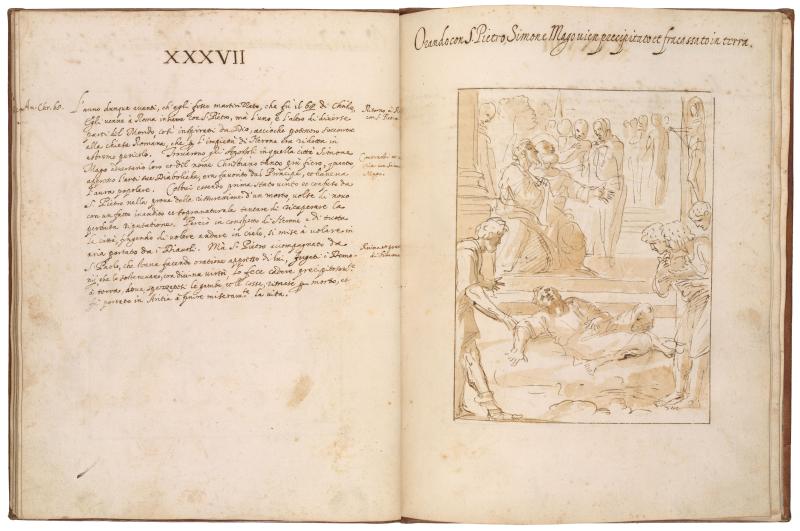 XXXVII
An. Chr. 68.
L'anno dunque avanti, ch'egli fosse martirizato, che fù il 68 di Christo,
egli venne a Roma insieme con S. Pietro, mà l'uno, e l'altro di diverse
parti del Mondo così inspirati da Dio, acciòche potessero soccorrere
alla chiesa Romana, che per l'impietà di Nerone era ridotta in
estremo pericolo. Trovarono gli Apostoli in quella città Simone
Mago avversario loro et del nome Christiano tanto più fiero, quanto
per l'arti sue Diaboliche, era favorito dal Principe, et haveva
l'aura popolare. Costui essendo prima stato vinto et confuso da
S. Pietro nella prova della risuscitatione d'un morto, volse di novo
con un fatto inaudito et sopranaturale tentare di ricuperare la
perduta riputatione. Perciò in conspetto di Nerone e di tutta
la città, fingendo di volere andare in cielo, si mise à volare in
aria portato da i Diavoli. Mà S. Pietro accompagnato da
S. Paolo, che stava facendo oratione appresso di lui, fugati i Demo-
nij che lo sostenevano, con divina virtù lo fece cadere precipitosamte
à terra, dove le gambe et le cosse, rimase morto, et
fù portato in a finire miseramte la vita.
Ritorno à Roma
con S. Pietro
Simon
Mago.
Ruina
di Simone
Orando con S. Pietro, Simone Mago vien precipitato et fracassato in terra.